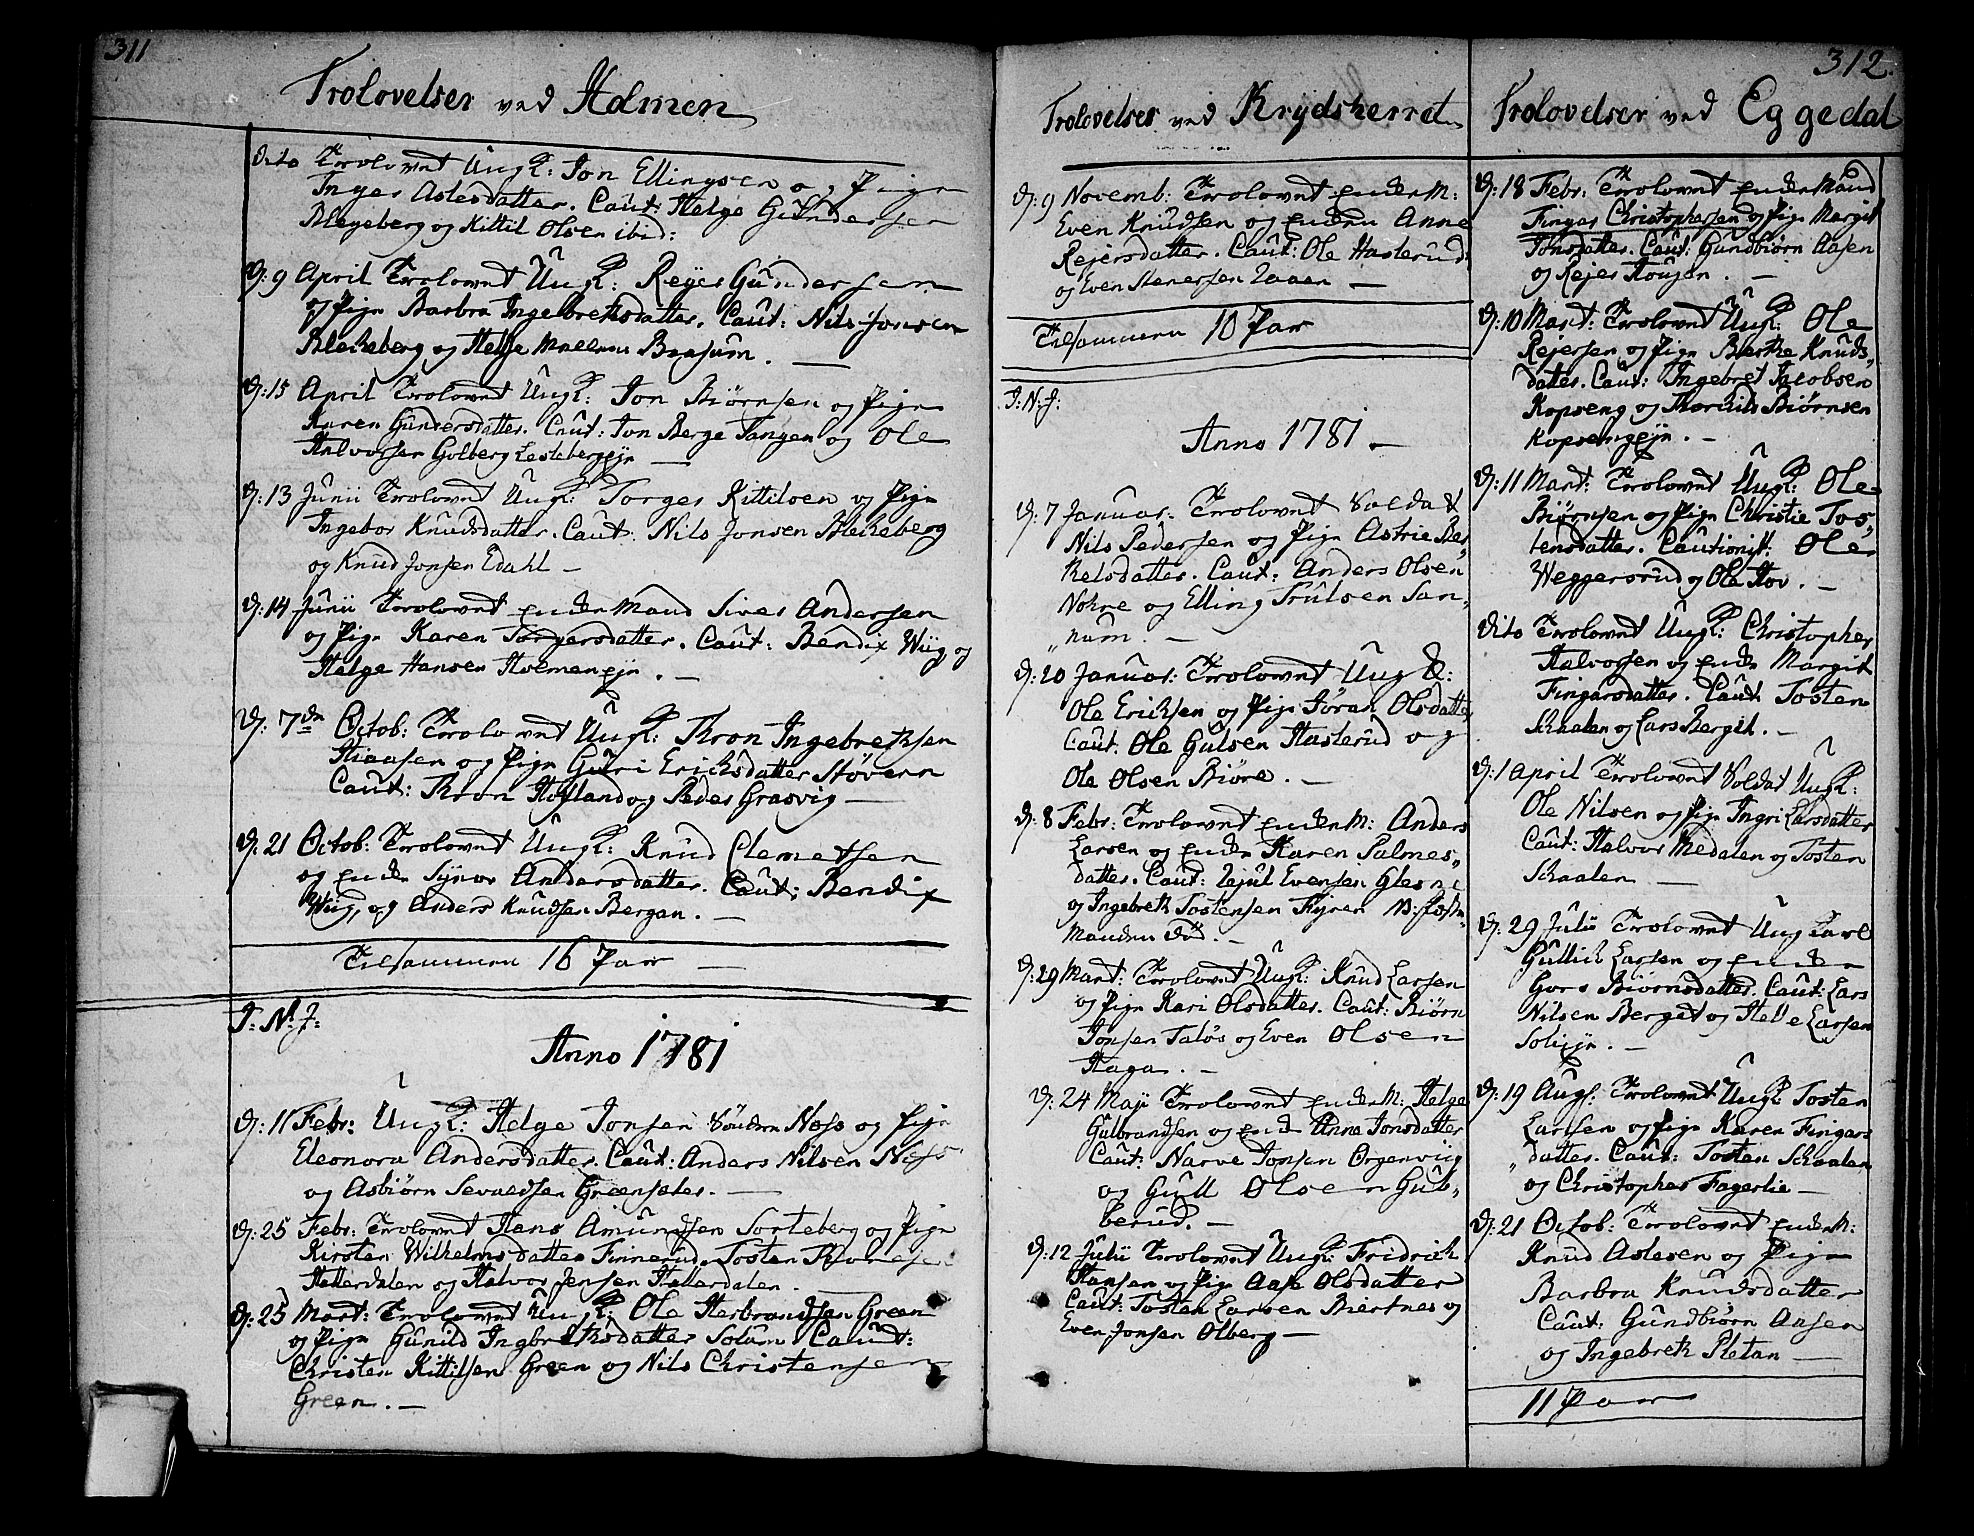 311
Trolovelser ved Holmen
dito Trolovet Ungk: Jon Ellingsen og Pige
Inger Aslesdatter. Caut: Helge Gundersen
Blegeberg og Kittil Olsen ibid:
D: 9 April Trolovet Ungk: Rejer Gundersen
og Pige Barbra Ingebretsdatter. Caut: Nils Jonsen
Blekeberg og Helge Braasum.
D: 15 April Trolovet Ungk: Jon Biørnsen og Pige
Karen Gundersdatter. Caut: Jon Berge Tangen og Ole
Halvorsen Golberg Lesteberg ejn
D: 13 Junii Trolovet Ungk: Torger Kittilsen og Pige
Ingebor Knudsdatter. Caut: Nils Jonsen Blekeberg
og Knud Jonsen Edahl
D: 14 Junii Trolovet Enke Mand Siver Andersen
og Pige Karen Torgersdatter. Caut: Bendix Wiig og
Helge Hansen Holmen ejn.
D: 7de Octob: Trolovet Ungk: Thron Ingebrethsen
Hiaasen og Pige Guri Ericksdatter Støvern
Caut: Thron Hofland og Peder Grasvig
D: 21 Octob: Trolovet Ungk: Knud Clemetsen
og Enke Synor Andersdatter. Caut: Bendix
Wiig, og Anders Knudsen Bergan.
Tilsammen 16 Par
I: N: J:
Anno 1781
D: 11 Febr: Ungk: Helge Jonsen Næss og Pige
Eleonora Andersdatter. Caut: Anders Nilsen Næss
og Asbiørn Sevaldsen Grensæter.
D: 25 Febr: Trolovet Hans Amundsen Sorteberg og Pige
Kirsten Wilhelmsdatter Finnerud. Tosten
Hatterdalen og Halvor Jensen Hatterdalen
D: 25 Mart: Trolovet Ungk: Ole Herbrandsen Green
og Pige Gunild Ingbrethsdatter Solum Caut:
Christen Kittilsen Green og Nils Christensen
Green.
Trolovelser ved Krydsherret
D: 9 Novemb: Trolovet Enke M:
Even Knudsen og Enken Anne
Rejersdatter. Caut: Ole Hasterud
og Even Stenersen
Tilsammen 10 Par
I: N: J:
Anno 1781
D: 7 Januar: Trolovet Soldat
Nils Pedersen og Pige Astrie Ber„
thelsdatter. Caut: Anders Olsen
Nokre og Elling Trulsen San„
„num.
D: 20 Januar: Trolovet Ungk:
Ole Ericksen og Pige Jøran Olsdatter
Caut. Ole Gulsen Hasterud og
Ole Olsen Biøre.
D: 8 Febr: Trolovet Enke M: Anders
Larsen og Enke Karen Salmes„
datter. Caut: Evensen Glesne
og Ingebreth Tostensen
Manden død.
D: 29 Mart: Trolovet Ungk: Knud Larsen
og Pige Kari Olsdatter. Caut: Biørn
Jonsen Taløs og Even Olsen
Haga.
D: 24 Maji Trolovet Enke M: Helge
Gulbrandsen og Enke Anne Jonsdatter
Caut: Narve Jonsen Ørgenviig
og Gull Olsen Gub„
berud.
D: 12 Julii Trolovet Ungk: Fridrich
Hansen og Pige Aase Olsdatter
Caut: Tosten Larsen Biertnes og
Even Jonsen Olberg
312.
Trolovelser ved Eggedal
D: 18 Febr: Trolovet Enke Mand
Finger Christophersen og Pige Margit
Jonsdatter. Caut: Gundbiørn Aasen
og Rejer Hougen.
D: 10 Mart: Trolovet Ungk: Ole
Rejersen og Pige Berthe Knuds„
datter. Caut: Ingebret Jacobsen
Kopseng og Thorkils Biørnsen
Kopseng ejn.
D: 11 Mart: Trolovet Ungk: Ole
Biørnsen og Pige Christie Tos„
tensdatter. Cautionist: Ole
Weggersrud og Ole Hov.
Dito Trolovet Ungk: Christopher
Halvorsen og Enke Margit
Fingarsdatter. Caut Tosten
Skaalen og Lars Berget.
D: 1 April Trolovet Soldat Ungk:
Ole Nilsen og Pige Ingri Larsdatter
Caut: Halvor Medalen og Tosten
Skaalen
D: 29 Julii Trolovet Ung Karl
Gullich Larsen og Enke
Goro Biørnsdatter. Caut: Lars
Nilsen Berget og Helge Larsen
D: 19 Augs: Trolovet Ungk Tosten
Larsen og Pige Karen Fingars
„datter. Caut: Tosten Skaalen
og Christopher Fagerlie
D: 21 Octob: Trolovet Enke M:
Knud Aslesen og Pige
Barbra Knudsdatter
Caut: Gundbiørn Aasen
og Ingebreth Pletan
11 Par